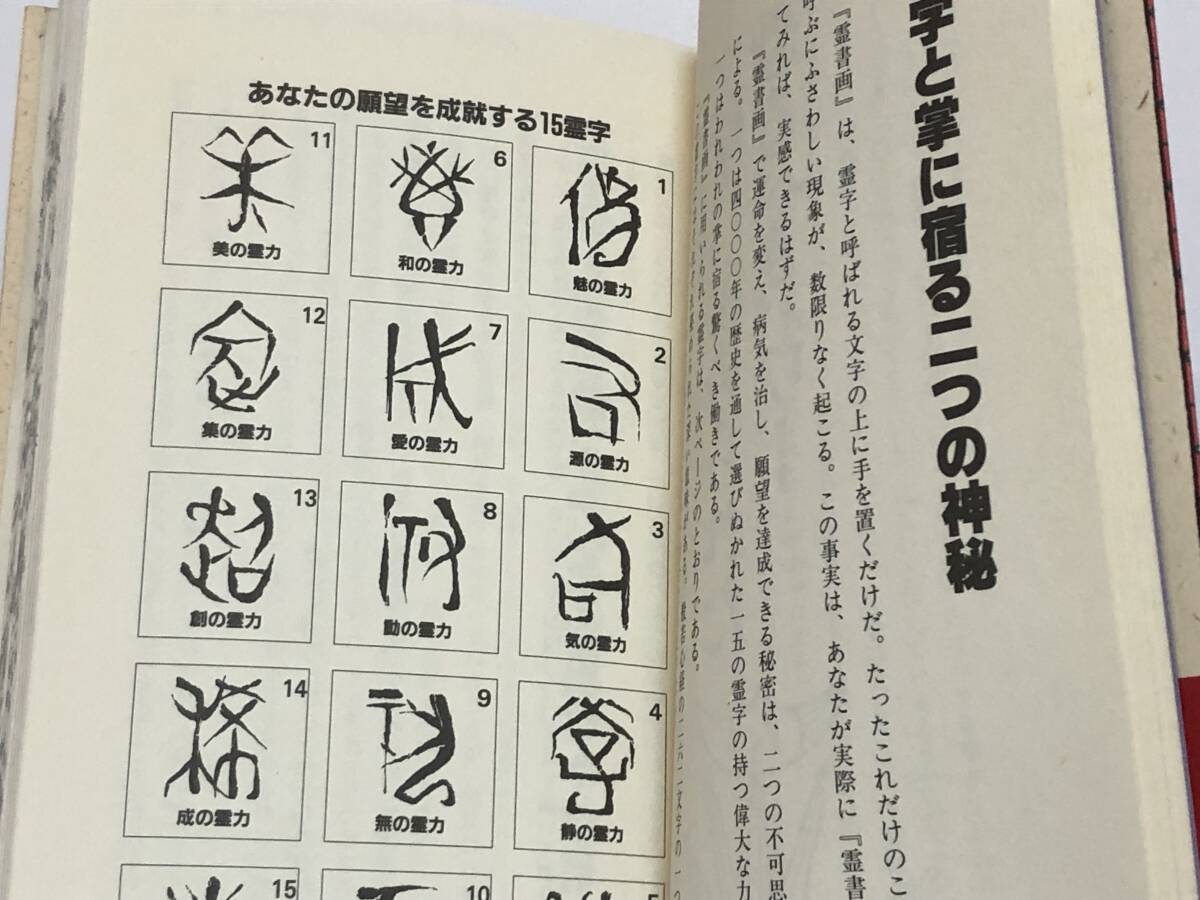 字と掌に宿る二つの神秘
『霊書画』は、霊字と呼ばれる文字の上に手を置くだけだ。たったこれだけのこ
呼ぶにふさわしい現象が、数限りなく起こる。この事実は、あなたが実際に『霊書
てみれば、実感できるはずだ。
『霊書画』で運命を変え、病気を治し、願望を達成できる秘密は、二つの不可思
による。一つは四〇〇〇年の歴史を通して選びぬかれた一五の霊字の持つ偉大な力
一つはわれわれの掌に宿る驚くべき働きである。
『霊書画』に用いられる霊字は、次ページのとおりである。
意味がある。般若心経の二六二文字の一つ
あなたの願望を成就する15霊字
1
魅の霊力
2
源の霊力
3
気の霊力
4
静の霊力
5
6
和の霊力
7
愛の霊力
8
動の霊力
9
無の霊力
10
11
美の霊力
12
集の霊力
13
創の霊力
14
成の霊力
15